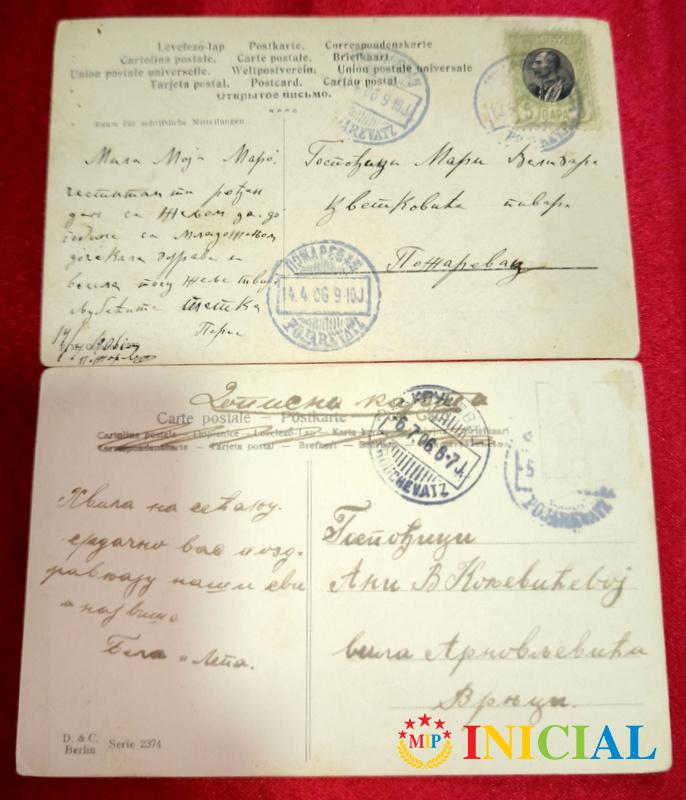 Levelezö-lap Postkarte. Correspondenzkarte
Cartolina postale. Carte postale. Briefkaart.
Union postale universelle. Weltpostverein. Union postale universale
Tarjeta postal. Postcard. Cartão postal
Открытое письмо.
Raum für schriftliche Mitteilungen
5 ПАРА
POJAREVATZ
Мила Моја Маро
честитам ти рођен
здрава и
љубећа те тетка
Госпођици Мари Велизара
Цветковића
Пожаревац
ПОЖАРЕВАЦ
14.4.06 9-10J
POJAREVATZ
Дописна карта
Carte postale – Postkarte
Cartolina postale – Dopisnice – Levelezö-Lap – Karta
Correspondenzkarte – Tarjeta postal – Brefkort
6.7.06.6-7J.
KROUCHEVATZ
POJAREVATZ
Хвала на сећању.
срдачно вас позд-
рављају наши сви
а највише
Бела и Лепа.
Госпођици
Ани В
вила
Врњци.
D. & C.
Berlin Serie 2374
MIP INICIAL